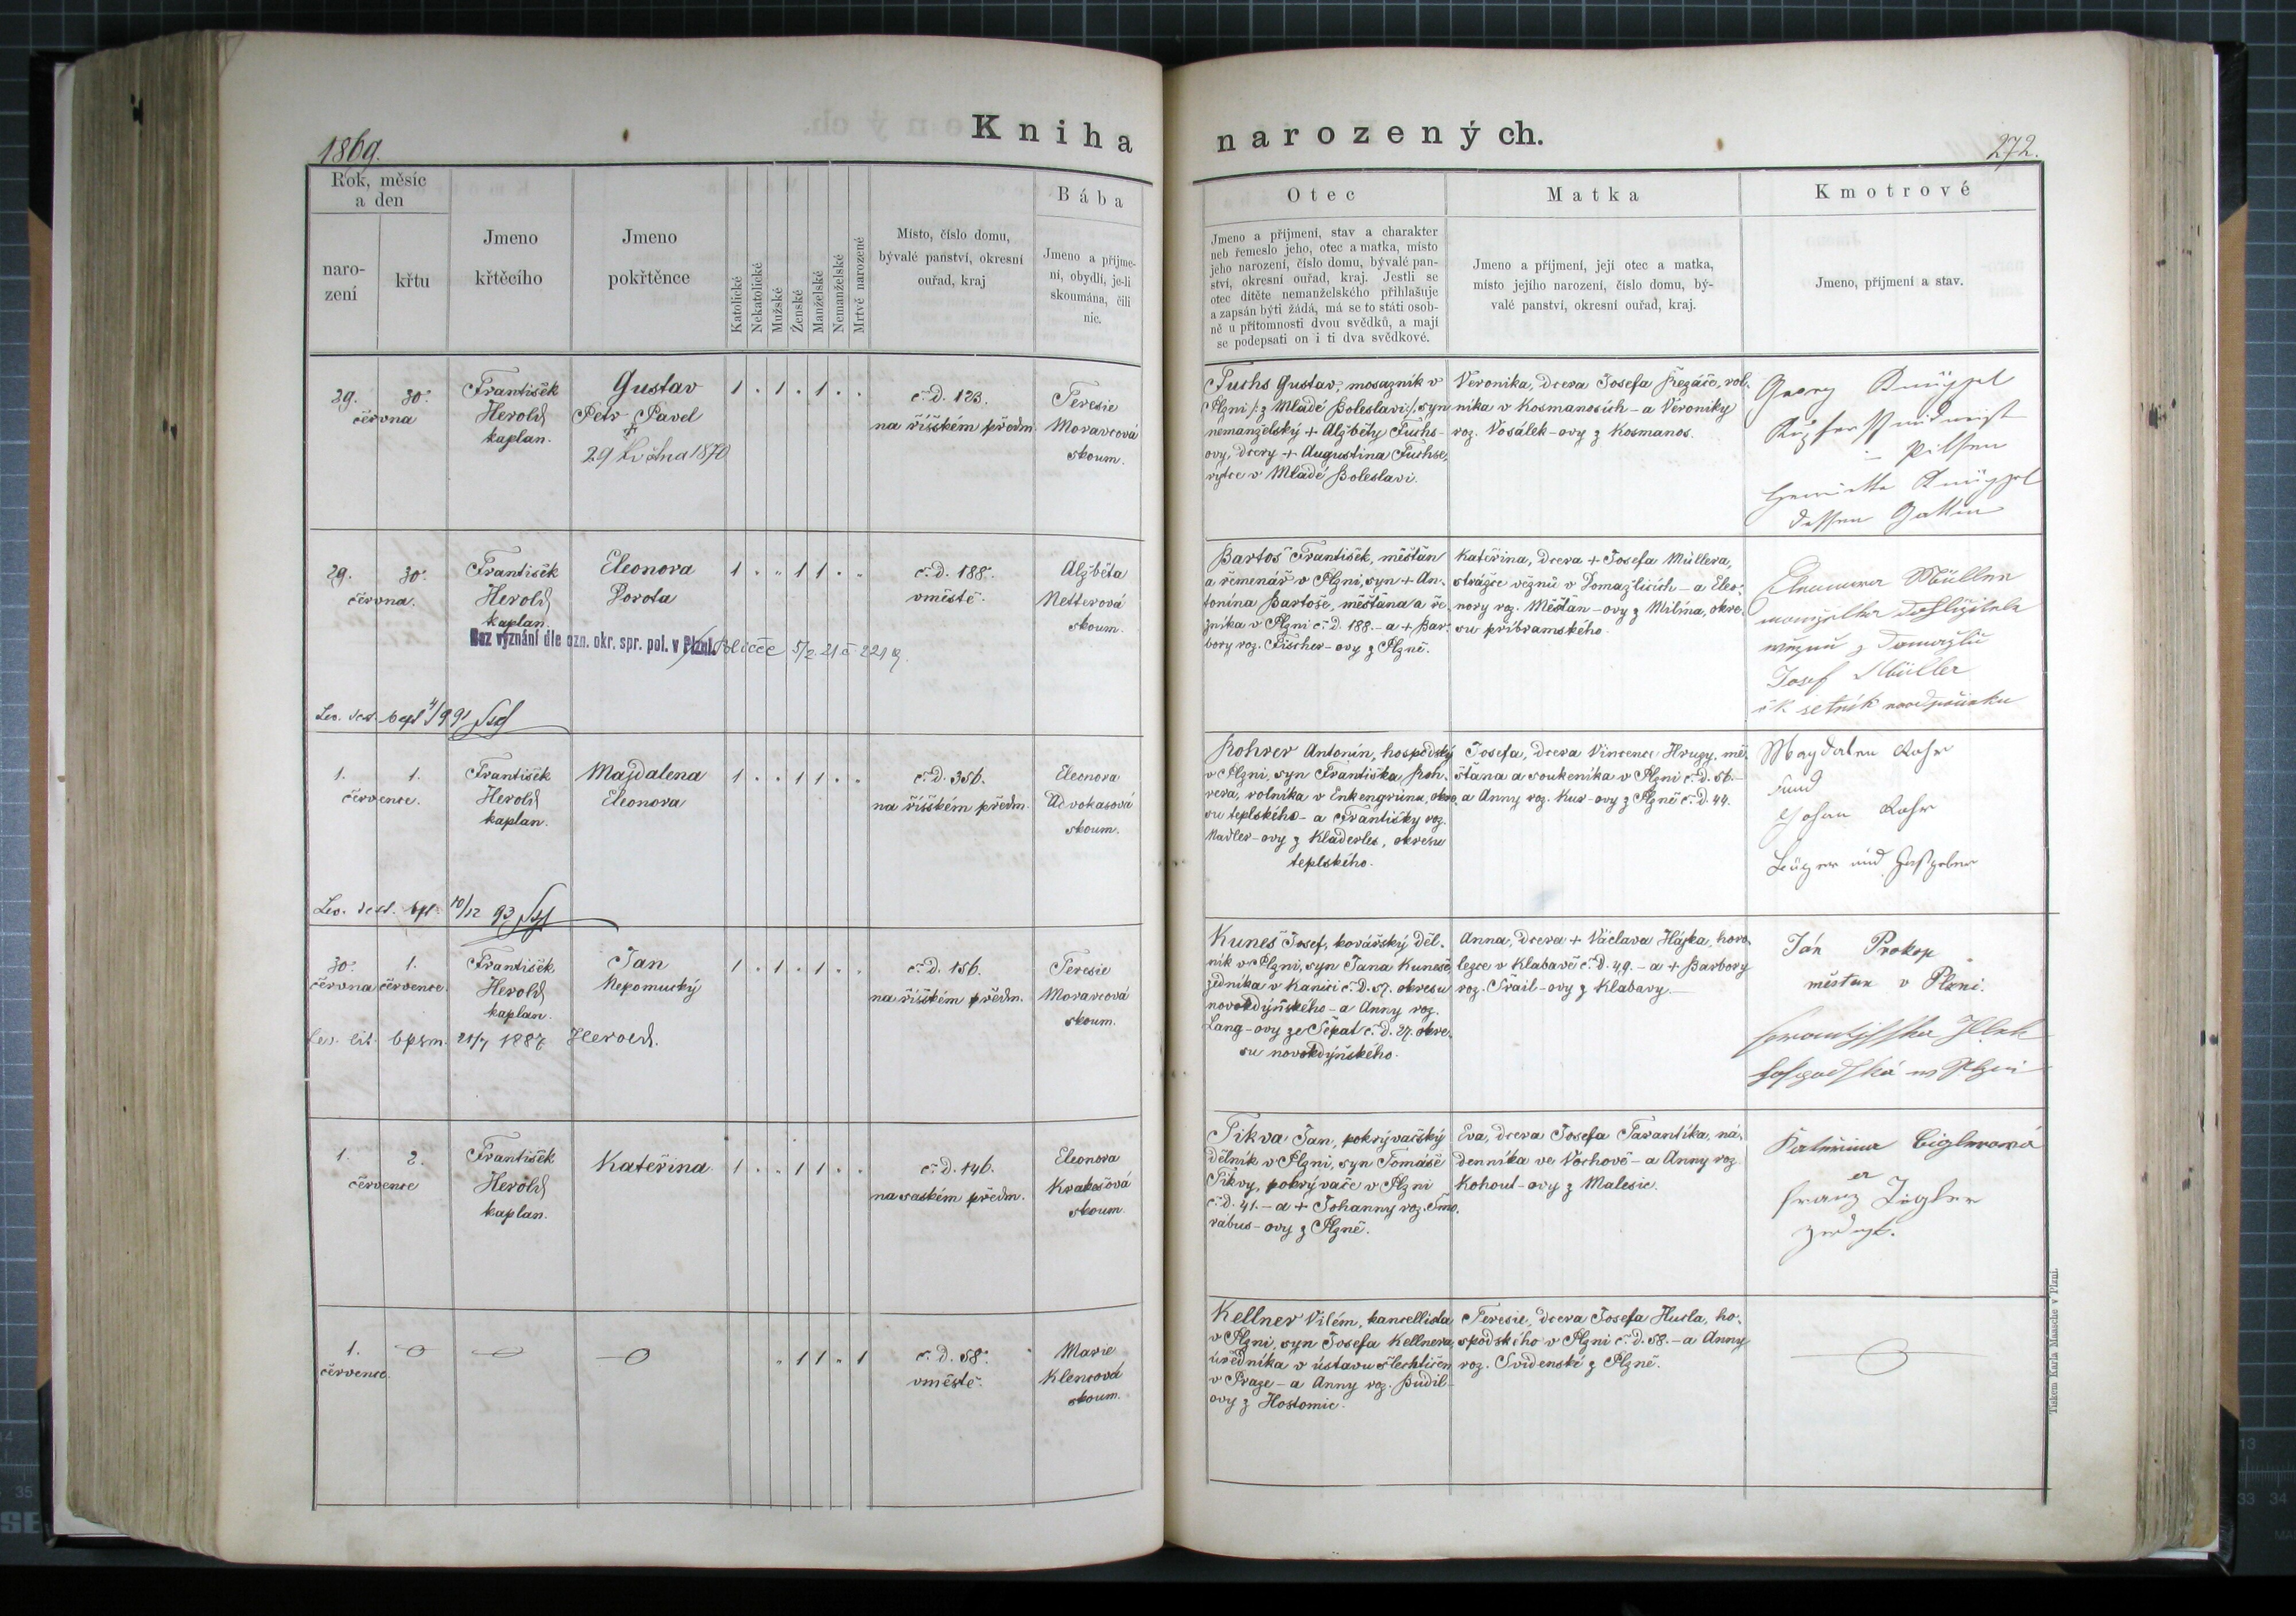 1869.
Kniha
narozených.
272.
Rok, měsíc
a den
naro-
zení
křtu
Jmeno
křtěcího
Jmeno
pokřtěnce
Katolické
Nekatolické
Mužské
Ženské
Manželské
Nemanželské
Mrtvě narozené
Místo, číslo domu,
bývalé panství, okresní
ouřad, kraj
Bába
Jmeno a příjme-
ní, obydlí, je-li
skoumána, čili
nic.
Otec
Jmeno a příjmení, stav a charakter
neb řemeslo jeho, otec a matka, místo
jeho narození, číslo domu, bývalé pan-
ství, okresní ouřad, kraj. Jestli se
otec dítěte nemanželského přihlašuje
a zapsán býti žádá, má se to státi osob-
ně u přítomnosti dvou svědků, a mají
se podepsati on i ti dva svědkové.
Matka
Jmeno a příjmení, její otec a matka,
místo jejího narození, číslo domu, bý-
valé panství, okresní ouřad, kraj.
Kmotrové
Jmeno, příjmení a stav.
29. 30.
června
František
Herold
kaplan.
Gustav
Petr Pavel
+
29 května 1870
1 . 1 . 1 . .
č. D. 123.
na říšském předm.
Teresie
Moravcová
skoum.
Fuchs Gustav, mosazník v
Plzni /: z Mladé Boleslavi :/, syn
nemanželský + Alžběty Fuchs-
ovy, dcery + Augustina Fuchse,
rytce v Mladé Boleslavi.
Veronika, dcera Josefa Řezáče, rol-
níka v Kosmanosích - a Veroniky
roz. Vosálek-ovy z Kosmanos.
Georg Knüppel
Pilsen
Henriette Knüppel
dessen Gattin
29. 30.
června.
František
Herold
kaplan.
Eleonora
Dorota
1 . „ 1 1 . .
č. D. 188.
v městě.
Alžběta
Netterová
skoum.
Bez vyznání dle ozn. okr. spr. pol. v Plzni.
5/2 21 č 221
Bartoš František, měšťan
a řemenář v Plzni, syn + An-
tonína Bartoše, měšťana a ře-
zníka v Plzni č. D. 188. - a + Bar-
bory roz. Fischer-ovy z Plzně.
Kateřina, dcera + Josefa Müllera,
strážce vězňů v Domažlicích - a Eleo-
nory roz. Měšťan-ovy z Milína, okre-
su příbramského.
Eleonora Müller
manželka
Josef Müller
Lev. test. bapt 4/9 91
1. 1.
července.
František
Herold
kaplan.
Majdalena
Eleonora
1 . . 1 1 . .
č. D. 356.
na říšském předm.
Eleonora
Advokasová
skoum.
Rohrer Antonín, hospodský
v Plzni, syn Františka Roh-
rera, rolníka v Enkengrünu, okre-
su teplského - a Františky roz.
Nadler-ovy z Kladerles, okresu
teplského.
Josefa, dcera Vincence Hrugy, mě-
šťana a soukeníka v Plzni č. D. 56. -
a Anny roz. Kus-ovy z Plzně č. D. 44.
Magdalena Rohr
und
Johan Rohr
Lev. test. bpt. 10/12 93
30. 1.
června července
František
Herold
kaplan.
Jan
Nepomucký
1 . 1 . 1 . .
č. D. 156.
na říšském předm.
Teresie
Moravcová
skoum.
Kuneš Josef, kovářský děl-
ník v Plzni, syn Jana Kuneše,
zedníka v Kanici č. D. 57. okresu
novokdýňského - a Anny roz.
Lang-ovy ze Sepat č. D. 27. okre-
su novokdýňského.
Anna, dcera + Václava Hájka, horo-
lezce v Klabavě č. D. 49. - a + Barbory
roz. Šrail-ovy z Klabavy.
Ján Prokop
městan v Plzni.
Lev. lit. bpsm. 21/7 1887 Herold.
1. 2.
července
František
Herold
kaplan.
Kateřina
1 . „ 1 1 . .
č. D. 146.
na saském předm.
Eleonora
Krakešová
skoum.
Tikva Jan, pokrývačský
dělník v Plzni, syn Tomáše
Tikvy, pokrývače v Plzni
č. D. 41. - a + Johanny roz. Smo-
rábus-ovy z Plzně.
Eva, dcera Josefa Tarantíka, ná-
denníka ve Vochově - a Anny roz.
Kohout-ovy z Malesic.
Kateřina Ciglerová
Franz Zigler
1.
července.
„ 1 1 „ 1
č. D. 58.
v městě.
Marie
Klencová
skoum.
Kellner Vilém, kancellista
v Plzni, syn Josefa Kellnera,
úředníka v ústavu šlechtičen
v Praze - a Anny roz. Budil-
ovy z Hostomic.
Teresie, dcera Josefa Husla, ho-
spodského v Plzni č. D. 58. - a Anny
roz. Svidenské z Plzně.
Tiskem Karla Maasche v Plzni.